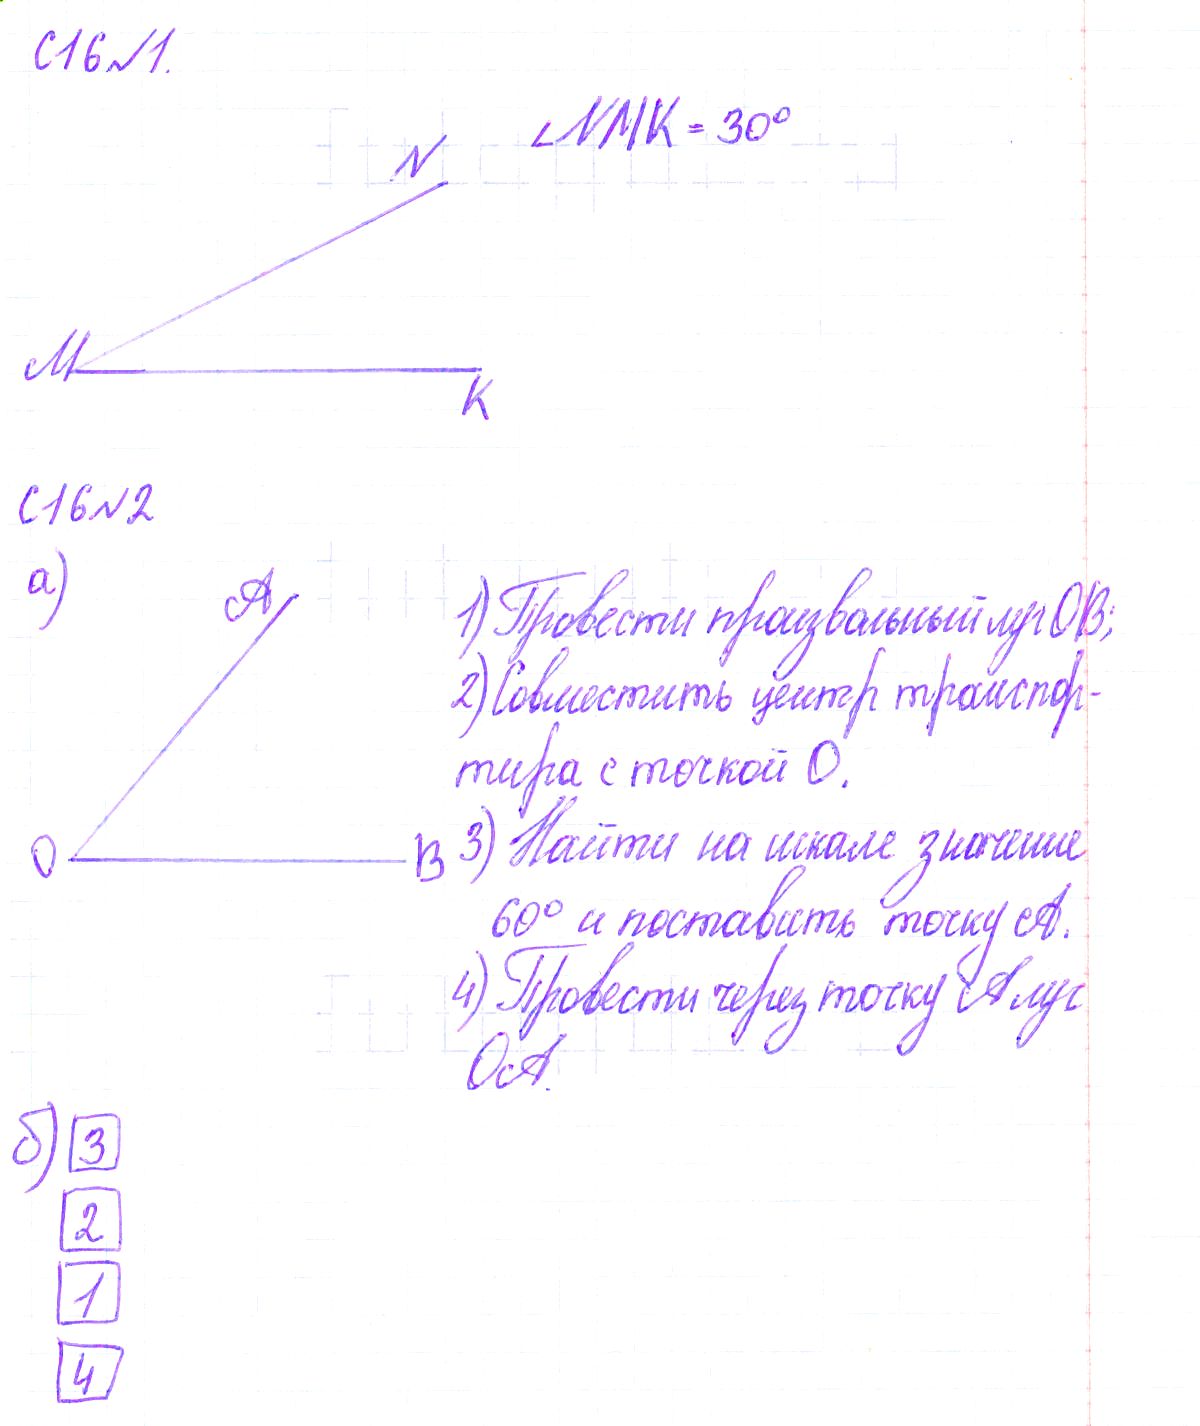 С16№1.
∠NMK = 30°
N
M
K
С16№2
а)
A
O
B
1) Провести произвальный луч OB;
2) Совместить центр транспор-
тира с точкой О.
3) Найти на шкале значение
60° и поставить точку А.
4) Провести через точку А луч
ОА.
б) 3
2
1
4